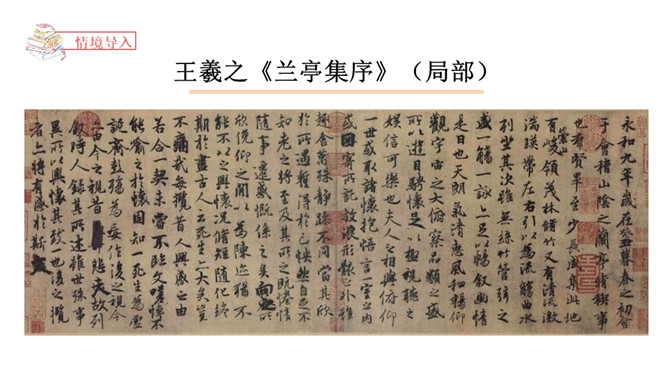 情境导入
王羲之《兰亭集序》（局部）
永和九年歲在癸丑暮春之初會
于會稽山陰之蘭亭脩稧事
也羣賢畢至少長咸集此地
有崇山峻領茂林脩竹又有清流激
湍暎帶左右引以為流觴曲水
列坐其次雖無絲竹管弦之
盛一觴一詠亦足以暢敘幽情
是日也天朗氣清惠風和暢仰
觀宇宙之大俯察品類之盛
所以遊目騁懷足以極視聽之
娛信可樂也夫人之相與俯仰
一世或取諸懷抱悟言一室之內
或因寄所託放浪形骸之外雖
趣舍萬殊靜躁不同當其欣
於所遇暫得於己怏然自足不
知老之將至及其所之既惓情
隨事遷感慨係之矣向之所
欣俛仰之間以為陳迹猶不
能不以之興懷況脩短隨化終
期於盡古人云死生亦大矣豈
不痛哉每攬昔人興感之由
若合一契未嘗不臨文嗟悼不
能喻之於懷固知一死生為虛
誕齊彭殤為妄作後之視今
亦由今之視昔悲夫故列
敘時人錄其所述雖世殊事
異所以興懷其致一也後之攬
者亦將有感於斯文